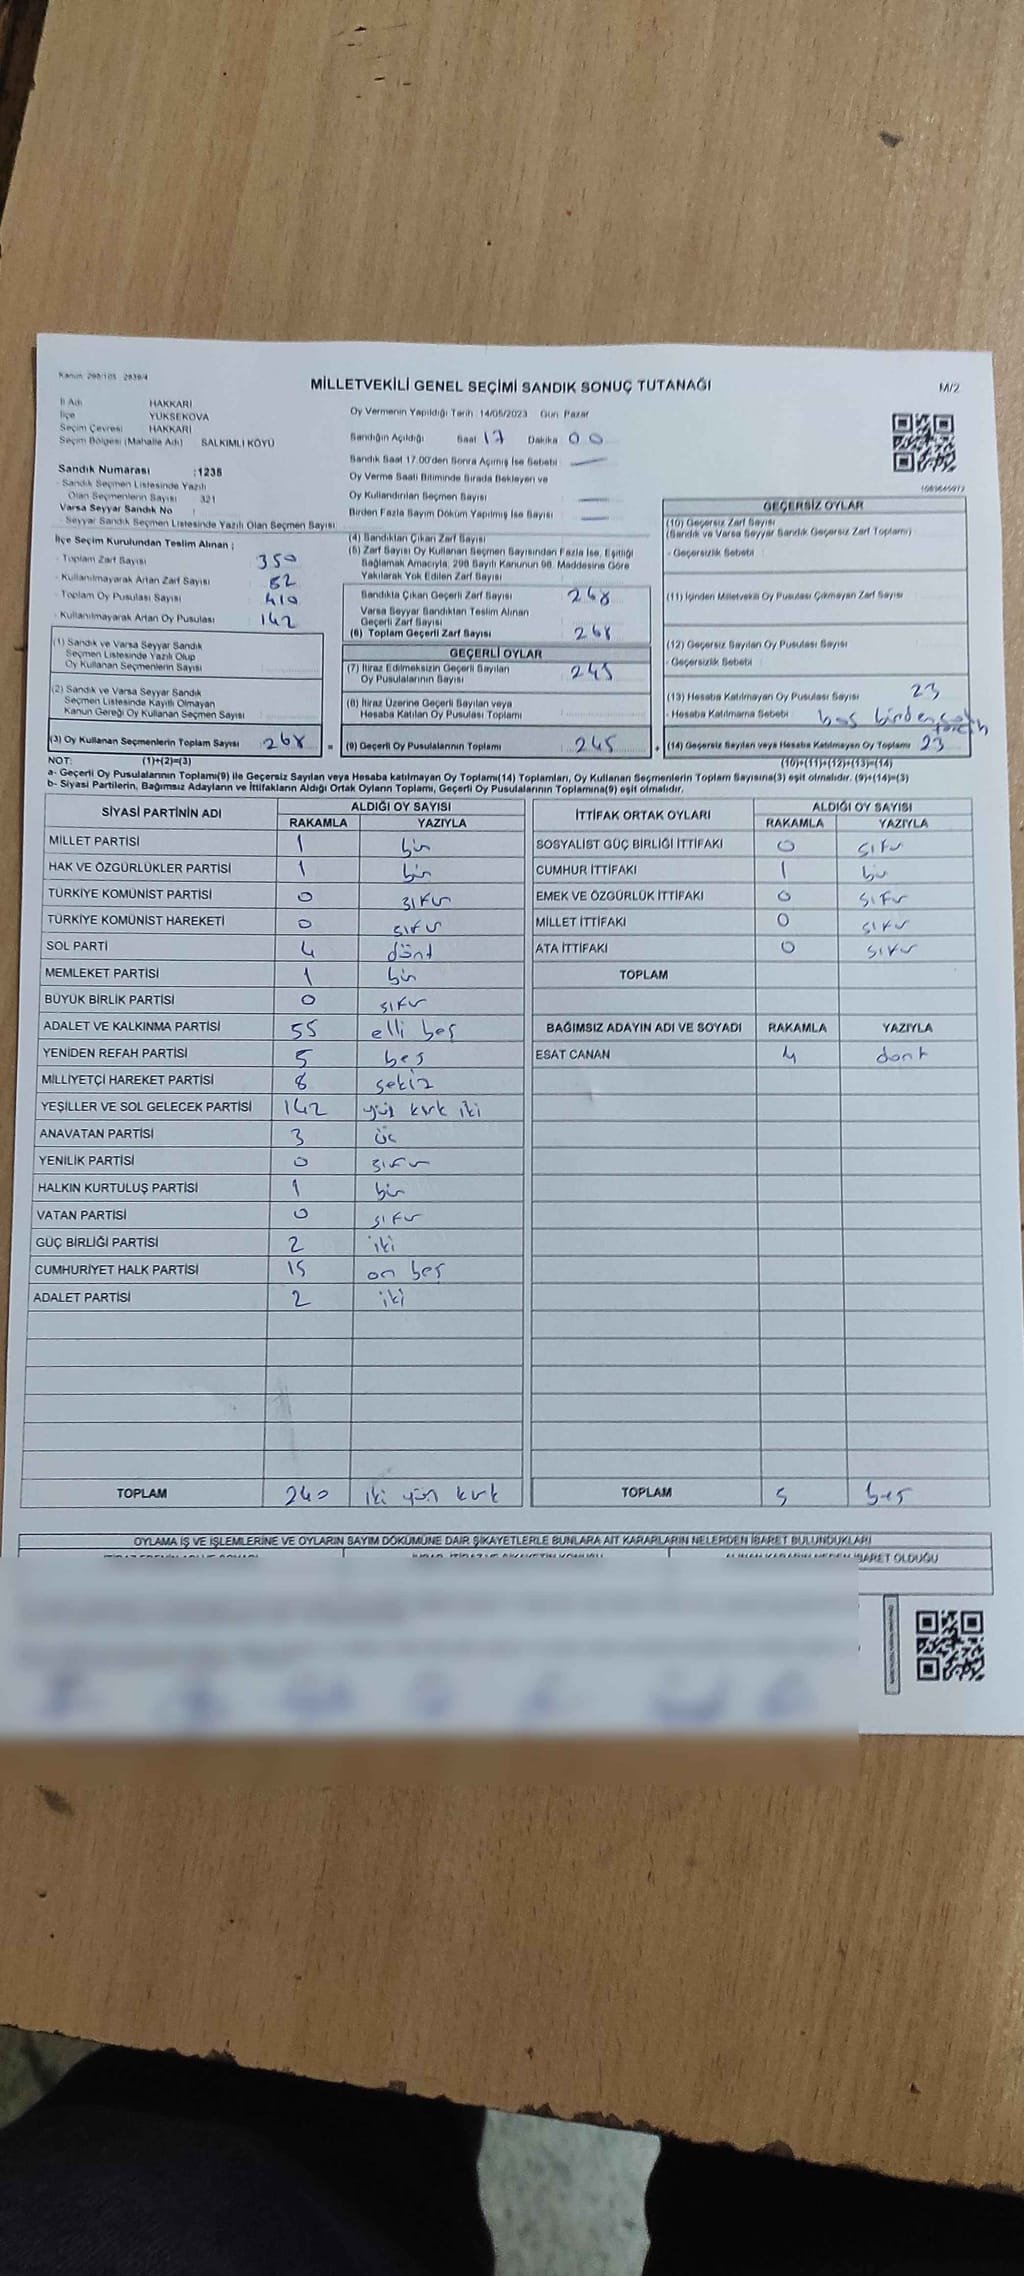 Kanun: 298/105 2839/4
MİLLETVEKİLİ GENEL SEÇİMİ SANDIK SONUÇ TUTANAĞI
M/2
İl Adı HAKKARİ
İlçe YÜKSEKOVA
Seçim Çevresi HAKKARİ
Seçim Bölgesi (Mahalle Adı) SALKIMLI KÖYÜ
Sandık Numarası :1238
- Sandık Seçmen Listesinde Yazılı
Olan Seçmenlerin Sayısı 321
Varsa Seyyar Sandık No :
- Seyyar Sandık Seçmen Listesinde Yazılı Olan Seçmen Sayısı:
İlçe Seçim Kurulundan Teslim Alınan ;
- Toplam Zarf Sayısı 350
- Kullanılmayarak Artan Zarf Sayısı 82
- Toplam Oy Pusulası Sayısı 410
- Kullanılmayarak Artan Oy Pusulası 142
(1) Sandık ve Varsa Seyyar Sandık
Seçmen Listesinde Yazılı Olup
Oy Kullanan Seçmenlerin Sayısı
(2) Sandık ve Varsa Seyyar Sandık
Seçmen Listesinde Kayıtlı Olmayan
Kanun Gereği Oy Kullanan Seçmen Sayısı
(3) Oy Kullanan Seçmenlerin Toplam Sayısı 268 =
Oy Vermenin Yapıldığı Tarih :14/05/2023 Gün: Pazar
Sandığın Açıldığı Saat 17 Dakika 00
Sandık Saat 17.00'den Sonra Açılmış İse Sebebi :
Oy Verme Saati Bitiminde Sırada Bekleyen ve
Oy Kullandırılan Seçmen Sayısı :
Birden Fazla Sayım Döküm Yapılmış İse Sayısı :
(4) Sandıktan Çıkan Zarf Sayısı
(5) Zarf Sayısı Oy Kullanan Seçmen Sayısından Fazla İse, Eşitliği
Bağlamak Amacıyla, 298 Sayılı Kanunun 98. Maddesine Göre
Yakılarak Yok Edilen Zarf Sayısı
Sandıkta Çıkan Geçerli Zarf Sayısı 268
Varsa Seyyar Sandıktan Teslim Alınan
Geçerli Zarf Sayısı
(6) Toplam Geçerli Zarf Sayısı 268
GEÇERLİ OYLAR
(7) İtiraz Edilmeksizin Geçerli Sayılan
Oy Pusulalarının Sayısı 245
(8) İtiraz Üzerine Geçerli Sayılan veya
Hesaba Katılan Oy Pusulası Toplamı
(9) Geçerli Oy Pusulalarının Toplamı 245 +
1089645972
GEÇERSİZ OYLAR
(10) Geçersiz Zarf Sayısı
(Sandık ve Varsa Seyyar Sandık Geçersiz Zarf Toplamı)
- Geçersizlik Sebebi :
(11) İçinden Milletvekili Oy Pusulası Çıkmayan Zarf Sayısı
(12) Geçersiz Sayılan Oy Pusulası Sayısı
- Geçersizlik Sebebi :
(13) Hesaba Katılmayan Oy Pusulası Sayısı 23
- Hesaba Katılmama Sebebi : boş birden çok
tercih
(14) Geçersiz Sayılan veya Hesaba Katılmayan Oy Toplamı 23
NOT: (1)+(2)=(3) (10)+(11)+(12)+(13)=(14)
a- Geçerli Oy Pusulalarının Toplamı(9) ile Geçersiz Sayılan veya Hesaba katılmayan Oy Toplamı(14) Toplamları, Oy Kullanan Seçmenlerin Toplam Sayısına(3) eşit olmalıdır. (9)+(14)=(3)
b- Siyasi Partilerin, Bağımsız Adayların ve İttifakların Aldığı Ortak Oyların Toplamı, Geçerli Oy Pusulalarının Toplamına(9) eşit olmalıdır.
SİYASİ PARTİNİN ADI ALDIĞI OY SAYISI
RAKAMLA YAZIYLA
MİLLET PARTİSİ 1 bir
HAK VE ÖZGÜRLÜKLER PARTİSİ 1 bir
TÜRKİYE KOMÜNİST PARTİSİ 0 sıfır
TÜRKİYE KOMÜNİST HAREKETİ 0 sıfır
SOL PARTİ 4 dört
MEMLEKET PARTİSİ 1 bir
BÜYÜK BİRLİK PARTİSİ 0 sıfır
ADALET VE KALKINMA PARTİSİ 55 elli beş
YENİDEN REFAH PARTİSİ 5 beş
MİLLİYETÇİ HAREKET PARTİSİ 8 sekiz
YEŞİLLER VE SOL GELECEK PARTİSİ 142 yüz kırk iki
ANAVATAN PARTİSİ 3 üç
YENİLİK PARTİSİ 0 sıfır
HALKIN KURTULUŞ PARTİSİ 1 bir
VATAN PARTİSİ 0 sıfır
GÜÇ BİRLİĞİ PARTİSİ 2 iki
CUMHURİYET HALK PARTİSİ 15 on beş
ADALET PARTİSİ 2 iki
TOPLAM 240 iki yüz kırk
İTTİFAK ORTAK OYLARI ALDIĞI OY SAYISI
RAKAMLA YAZIYLA
SOSYALİST GÜÇ BİRLİĞİ İTTİFAKI 0 sıfır
CUMHUR İTTİFAKI 1 bir
EMEK VE ÖZGÜRLÜK İTTİFAKI 0 sıfır
MİLLET İTTİFAKI 0 sıfır
ATA İTTİFAKI 0 sıfır
TOPLAM
BAĞIMSIZ ADAYIN ADI VE SOYADI RAKAMLA YAZIYLA
ESAT CANAN 4 dört
TOPLAM 5 beş
OYLAMA İŞ VE İŞLEMLERİNE VE OYLARIN SAYIM DÖKÜMÜNE DAİR ŞİKAYETLERLE BUNLARA AİT KARARLARIN NELERDEN İBARET BULUNDUKLARI
İBARET OLDUĞU